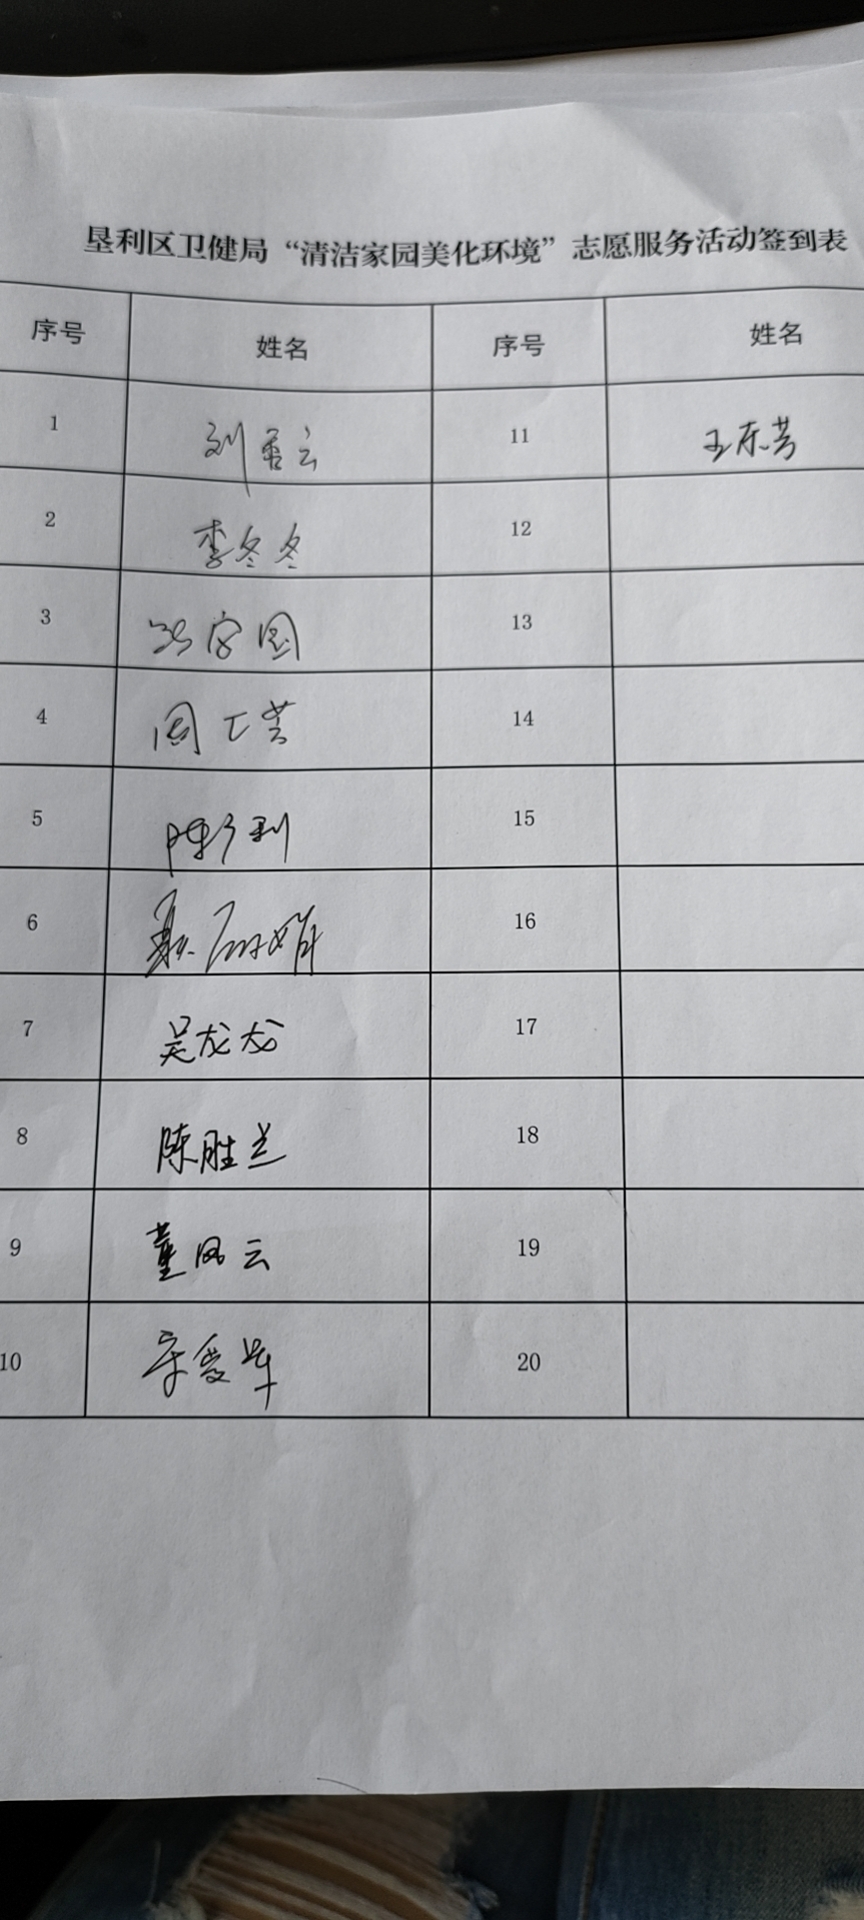 垦利区卫健局“清洁家园美化环境”志愿服务活动签到表
序号 姓名 序号 姓名
1 刘 云 11 王东芳
2 李冬冬 12
3 13
4 周 芸 14
5 陈 利 15
6 聂丽娟 16
7 吴龙龙 17
8 陈胜兰 18
9 董凤云 19
10 宋爱军 20